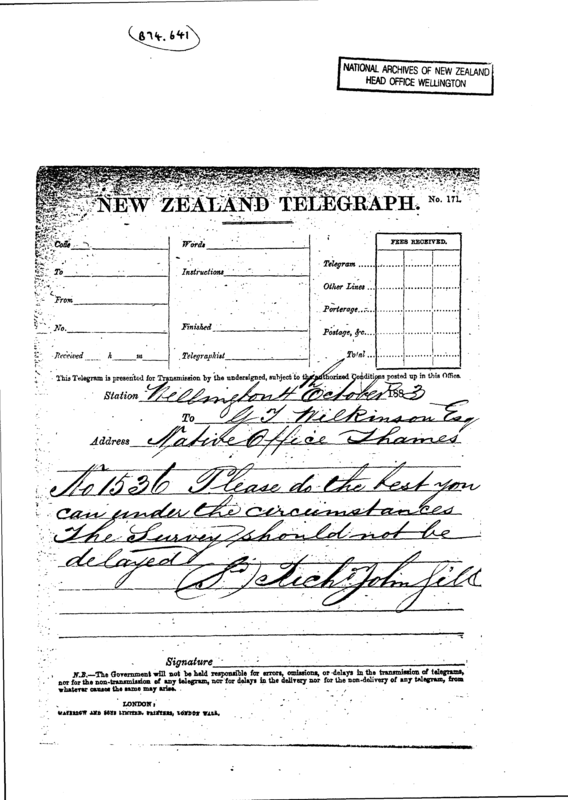 (B74.641)
NATIONAL ARCHIVES OF NEW ZEALAND
HEAD OFFICE WELLINGTON
NEW ZEALAND TELEGRAPH. No. 171.
Code
To
From
No.
Received h m
Words
Instructions
Finished
Telegraphist
FEES RECEIVED.
Telegram
Other Lines
Porterage
Postage, &c.
Total
This Telegram is presented for Transmission by the undersigned, subject to the authorized Conditions posted up in this Office.
Station Wellington 4th October 1883
To G T Wilkinson Esq
Address Native Office Thames
No 1536 Please do the best you
can under the circumstances
The Survey should not be
delayed
(Sd) Richd John Gill
Signature
N.B.—The Government will not be held responsible for errors, omissions, or delays in the transmission of telegrams,
nor for the non-transmission of any telegram, nor for delays in the delivery nor for the non-delivery of any telegram, from
whatever causes the same may arise.
LONDON:
WATERLOW AND SONS LIMITED, PRINTERS, LONDON WALL.